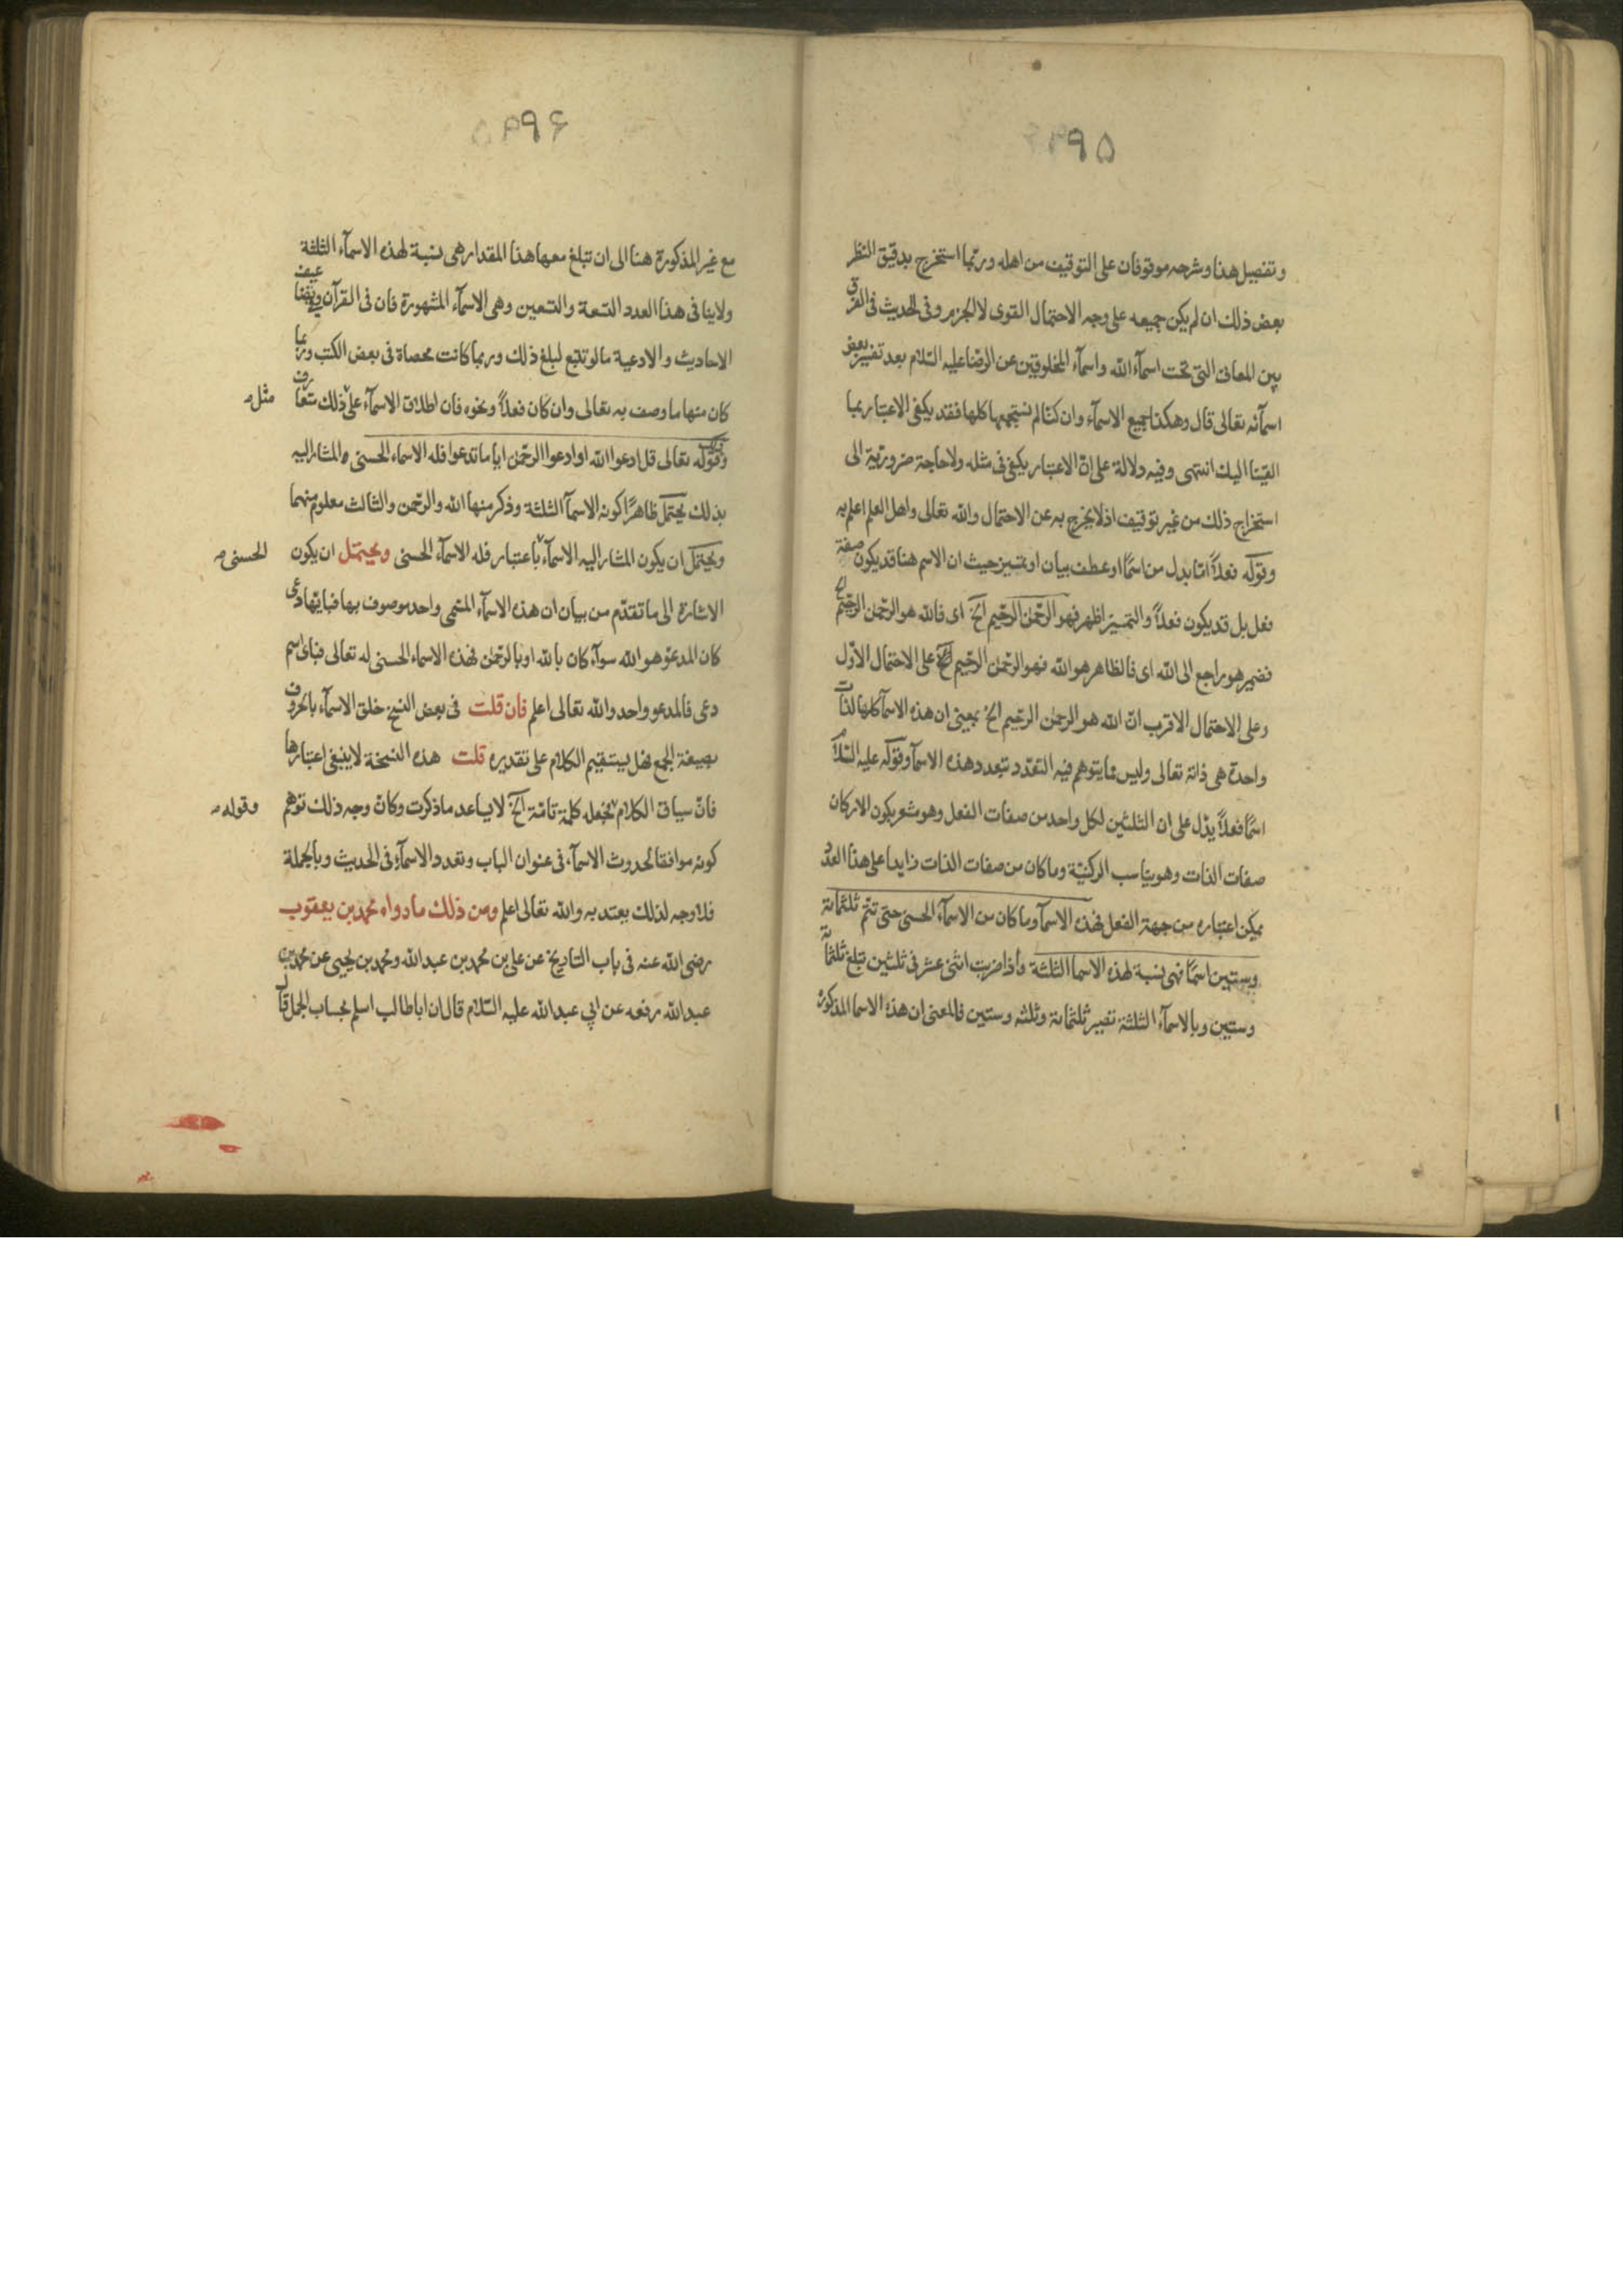 ۹۵
وتفصيل هذا وشرحه موقوفان على التوقيف من اهله وربّما استخرج بدقيق النظر
بعض ذلك ان لم يكن جميعه على وجه الاحتمال القوى لا الجزم وفى الحديث فى الفرق
بين المعانى التى تحت اسمآء الله واسمآء المخلوقين عن الرضا عليه السّلام بعد تفسير بعض
اسمآئه تعالى قال وهكذا جميع الاسمآء وان كنّا لم نستجمعها كلها فقد يكفى الاعتبار بما
القينا اليك انتهى وفيه دلالة على انّ الاعتبار يكفى فى مثله ولا حاجة ضروريّة الى
استخراج ذلك من غير توقيف اذ لا يخرج به عن الاحتمال والله تعالى واهل العلم اعلم به
وقوله فعلاً امّا بدل من اسمًا او عطف بيان او تمييز حيث ان الاسم هنا قد يكون صفة
فعل بل قد يكون فعلاً والتمييز اظهر فهو الرّحمن الرّحيم الخ اى فالله هو الرّحمن الرّحيم الخ
فضمير هو راجع الى الله اى فالظاهر هو الله فهو الرّحمن الرّحيم الخ على الاحتمال الاوّل
وعلى الاحتمال الاقرب انّ الله هو الرحمن الرحيم الخ بمعنى ان هذه الاسمآ كلها لذات
واحدة هى ذاته تعالى وليس مما يتوهم فيه التعدّد بتعدد هذه الاسمآ وقوله عليه السّلام
اسمًا فعلاً يدّل على ان الثلثين لكل واحد من صفات الفعل وهو مشعر بكون الاركان
صفات الذات وهو يناسب الركنيّة وما كان من صفات الذات زايدا على هذا العدد
يمكن اعتباره من جهة الفعل فهذه الاسمآ وما كان من الاسمآء الحسنى حتى تتم ثلثمائة
وستين اسمًا فهى نسبة لهذه الاسما الثلثة واذا ضربت اثنى عشر فى ثلثين تبلغ ثلثمائة
وستين وبالاسمآء الثلثة تصير ثلثمائة وثلثه وستين فالمعنى ان هذه الاسما المذكورة
۹۶
مع غير المذكورة هنا الى ان تبلغ معها هذا المقدار هى نسبة لهذه الاسمآء الثلثة
ولا ينافى هذا العدد التسعة والتسعين وهى الاسمآء المشهورة فان فى القرآن وفى
الاحاديث والادعية ما لو تتبع لبلغ ذلك وربما كانت محصاة فى بعض الكتب وربما
كان منها ما وصف به تعالى وان كان فعلاً ونحوه فان اطلاق الاسمآء على ذلك متعارف
مثل
وقوله تعالى قل ادعوا الله او ادعوا الرّحمن ايا ما تدعوا فله الاسماء الحسنى والمشار اليه
بذلك يحتمل ظاهرًا كونه الاسمآ الثلثة وذكر منها الله والرّحمن والثالث معلوم منهما
ويحتمل ان يكون المشار اليه الاسمآء باعتبار فله الاسمآء الحسنى ويحتمل ان يكون
الحسنى
الاشارة الى ما تقدّم من بيان ان هذه الاسمآء المسمى واحد موصوف بها فبايّها دعى
كان المدعوّ هو الله سوآء كان بالله او بالرّحمن فهذه الاسماء الحسنى له تعالى فباى اسم
دعى فالمدعو واحد والله تعالى اعلم فان قلت فى بعض النسخ خلق الاسمآء بالحروف
بصيغة الجمع فهل يستقيم الكلام على تقديره قلت هذه النسخة لا ينبغى اعتبارها
فانّ سياق الكلام فجعله كلمة تامّة الخ لا يساعد ما ذكرت وكانّ وجه ذلك توهم
وقوله
كونه موافقا لحدوث الاسمآء فى عنوان الباب وتعدد الاسمآء فى الحديث وبالجملة
فلا وجه لذلك يعتد به والله تعالى اعلم ومن ذلك ما رواه محمد بن يعقوب
رضى الله عنه فى باب التاريخ عن على بن محمد بن عبدالله ومحمد بن يحيى عن محمد بن
عبدالله رفعه عن ابي عبدالله عليه السّلام قال ان اباطالب اسلم بحساب الجمل قال